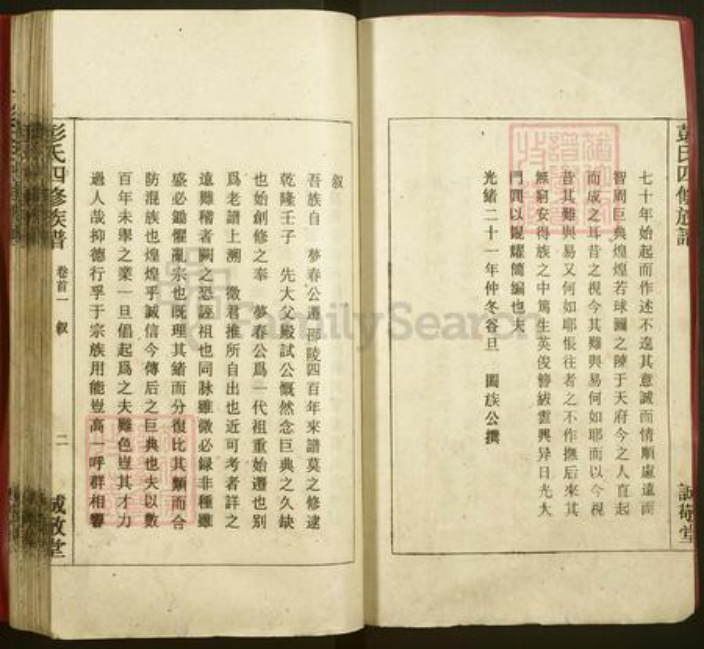 彭氏四修族譜
誠敬堂
七十年始起而作述不遠其意誠而情順慮遠而
智周巨典煌煌若球圖之陳于天府今之人直起
而成之耳昔之視今其難與易何如耶而以今視
昔其難與易又何如耶悵往者之不作撫后來其
無窮安得族之中篤生英俊簪紱雲興异日光大
門閭以焜耀簡編也夫
光緒二十一年仲冬谷旦 闔族公撰
叙
吾族自 夢春公遷邵陵四百年來譜莫之修逮
乾隆壬子 先大父殿試公慨然念巨典之久缺
也始創修之奉 夢春公爲一代祖重始遷也别
爲老譜上溯 徵君推所自出也近可考者詳之
遠難稽者闕之恐誣祖也同脉雖微必録非種雖
盛必鋤懼亂宗也既理其緒而分復比其類而合
防混族也煌煌乎誠信今傳后之巨典也夫以數
百年未舉之業一旦倡起爲之夫難色豈其才力
過人哉抑德行孚于宗族用能豈高一呼群相響
彭氏四修族譜 卷首一 叙 二 誠敬堂
FamilySearch